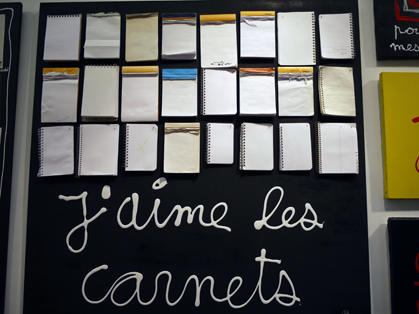 j'aime les
carnets
pou
mes